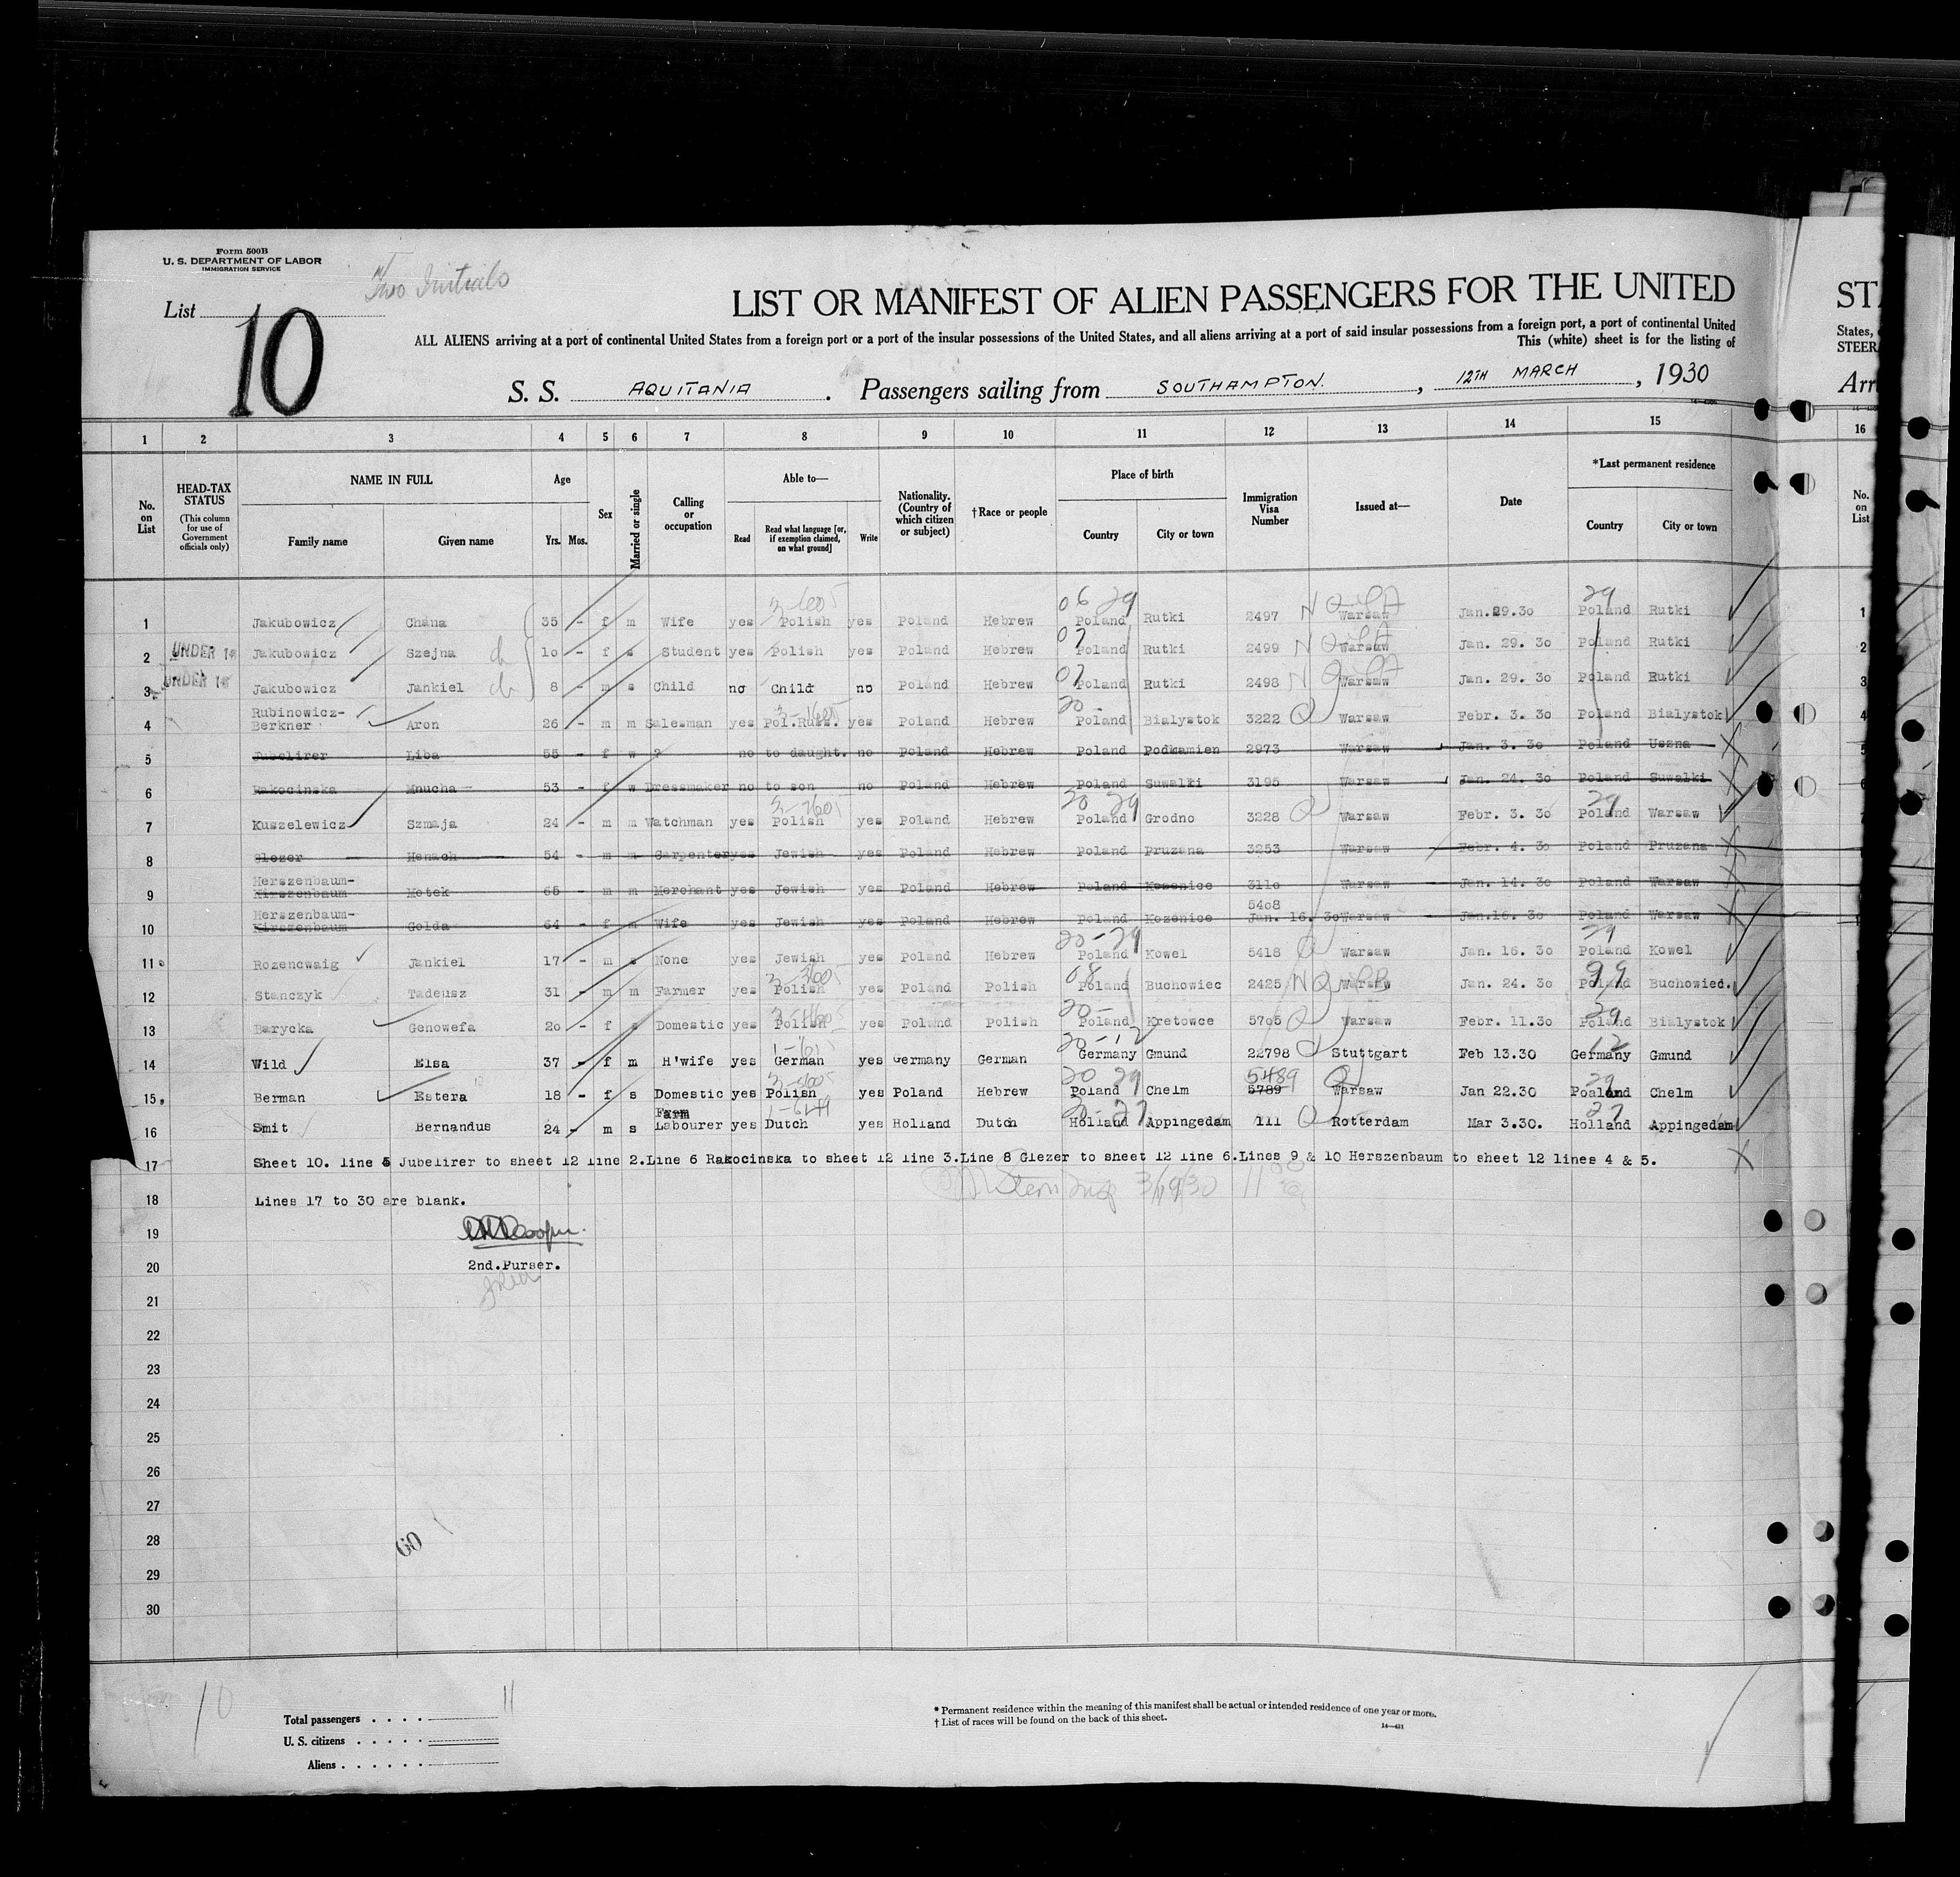 Form 500B
U. S. DEPARTMENT OF LABOR
IMMIGRATION SERVICE
Two Initials
List 10
LIST OR MANIFEST OF ALIEN PASSENGERS FOR THE UNITED
ALL ALIENS arriving at a port of continental United States from a foreign port or a port of the insular possessions of the United States, and all aliens arriving at a port of said insular possessions from a foreign port, a port of continental United
This (white) sheet is for the listing of
S. S. AQUITANIA. Passengers sailing from SOUTHAMPTON., 12TH MARCH, 1930
1 2 3 4 5 6 7 8 9 10 11 12 13 14 15
No. on List
HEAD-TAX STATUS (This column for use of Government officials only)
NAME IN FULL
Family name Given name
Age
Yrs. Mos.
Sex
Married or single
Calling or occupation
Able to—
Read Read what language [or, if exemption claimed, on what ground] Write
Nationality. (Country of which citizen or subject)
†Race or people
Place of birth
Country City or town
Immigration Visa Number
Issued at—
Date
*Last permanent residence
Country City or town
1 Jakubowicz Chana 35 - f m Wife yes Polish yes Poland Hebrew Poland Rutki 2497 Warsaw Jan.29.30 Poland Rutki
2 UNDER 16 Jakubowicz Szejna ch 10 - f s Student yes Polish yes Poland Hebrew Poland Rutki 2499 Warsaw Jan. 29. 30 Poland Rutki
3 UNDER 16 Jakubowicz Jankiel ch 8 - m s Child no Child no Poland Hebrew Poland Rutki 2498 Warsaw Jan. 29. 30 Poland Rutki
4 Rubinowicz-Berkner Aron 26 - m m Salesman yes Pol.Russ. yes Poland Hebrew Poland Bialystok 3222 Warsaw Febr. 3. 30 Poland Bialystok
5 Jubelirer Liba 55 - f w ? no to daught. no Poland Hebrew Poland Podkamien 2973 Warsaw Jan. 3. 30 Poland Uszna
6 Rakocinska Mnucha 53 - f w Dressmaker no to son no Poland Hebrew Poland Suwalki 3195 Warsaw Jan. 24. 30 Poland Suwalki
7 Kuszelewicz Szmaja 24 - m m Watchman yes Polish yes Poland Hebrew Poland Grodno 3228 Warsaw Febr. 3. 30 Poland Warsaw
8 Glezer Henach 54 - m m Carpenter yes Jewish yes Poland Hebrew Poland Pruzana 3253 Warsaw Febr. 4. 30 Poland Pruzana
9 Herszenbaum-Kirszenbaum Motek 65 - m m Merchant yes Jewish yes Poland Hebrew Poland Kozenice 3110 Warsaw Jan. 14. 30 Poland Warsaw
10 Herszenbaum-Kirszenbaum Golda 64 - f m Wife yes Jewish yes Poland Hebrew Poland Kozenice 5408 Jan. 16. 30 Warsaw Jan.16. 30 Poland Warsaw
11 Rozencwaig Jankiel 17 - m s None yes Jewish yes Poland Hebrew Poland Kowel 5418 Warsaw Jan. 16. 30 Poland Kowel
12 Stanczyk Tadeusz 31 - m m Farmer yes Polish yes Poland Polish Poland Buchowiec 2425 Warsaw Jan. 24. 30 Poland Buchowied.
13 Barycka Genowefa 20 - f s Domestic yes Polish yes Poland Polish Poland Kretowce 5705 Warsaw Febr. 11.30 Poland Bialystok
14 Wild Elsa 37 - f m H'wife yes German yes Germany German Germany Gmund 22798 Stuttgart Feb 13.30 Germany Gmund
15 Berman Estera 18 - f s Domestic yes Polish yes Poland Hebrew Poland Chelm 5489 5789 Warsaw Jan 22.30 Poaland Chelm
16 Smit Bernandus 24 - m s Farm Labourer yes Dutch yes Holland Dutch Holland Appingedam 111 Rotterdam Mar 3.30. Holland Appingedam
17 Sheet 10. line 5 Jubelirer to sheet 12 line 2.Line 6 Rakocinska to sheet 12 line 3.Line 8 Glezer to sheet 12 line 6.Lines 9 & 10 Herszenbaum to sheet 12 lines 4 & 5.
18 Lines 17 to 30 are blank.
19
20 2nd.Purser.
21
22
23
24
25
26
27
28
29
30
60
10
Total passengers . . . . 11
U. S. citizens . . . . .
Aliens . . . . . .
* Permanent residence within the meaning of this manifest shall be actual or intended residence of one year or more.
† List of races will be found on the back of this sheet.
ST
States,
STEER
Arr
16
No. on List
1
2
3
4